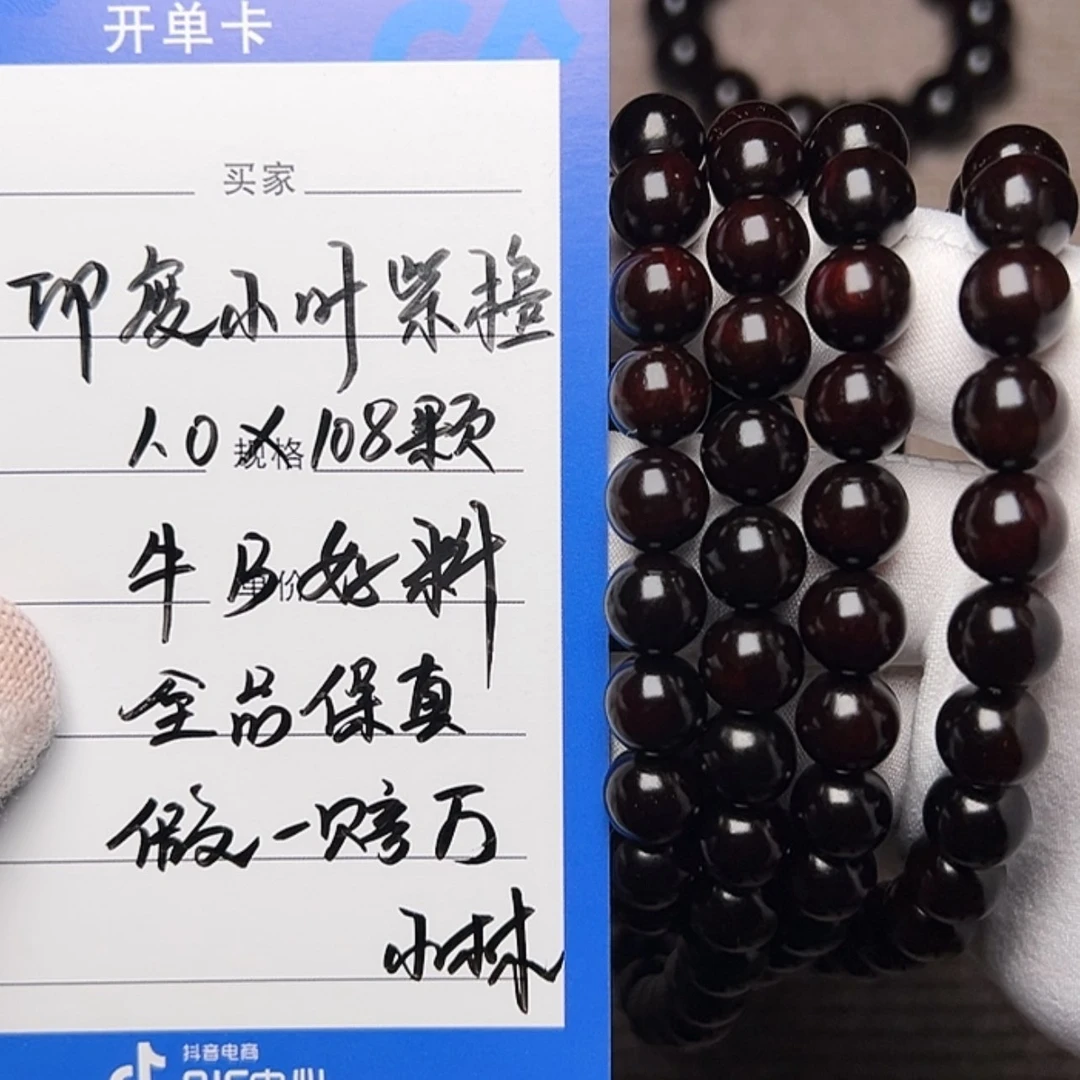 开单卡
买家
印度小叶紫檀
1.0×108颗
规格
牛B好料
单价
全品保真
假一赔万
小林
抖音电商
QIC中心